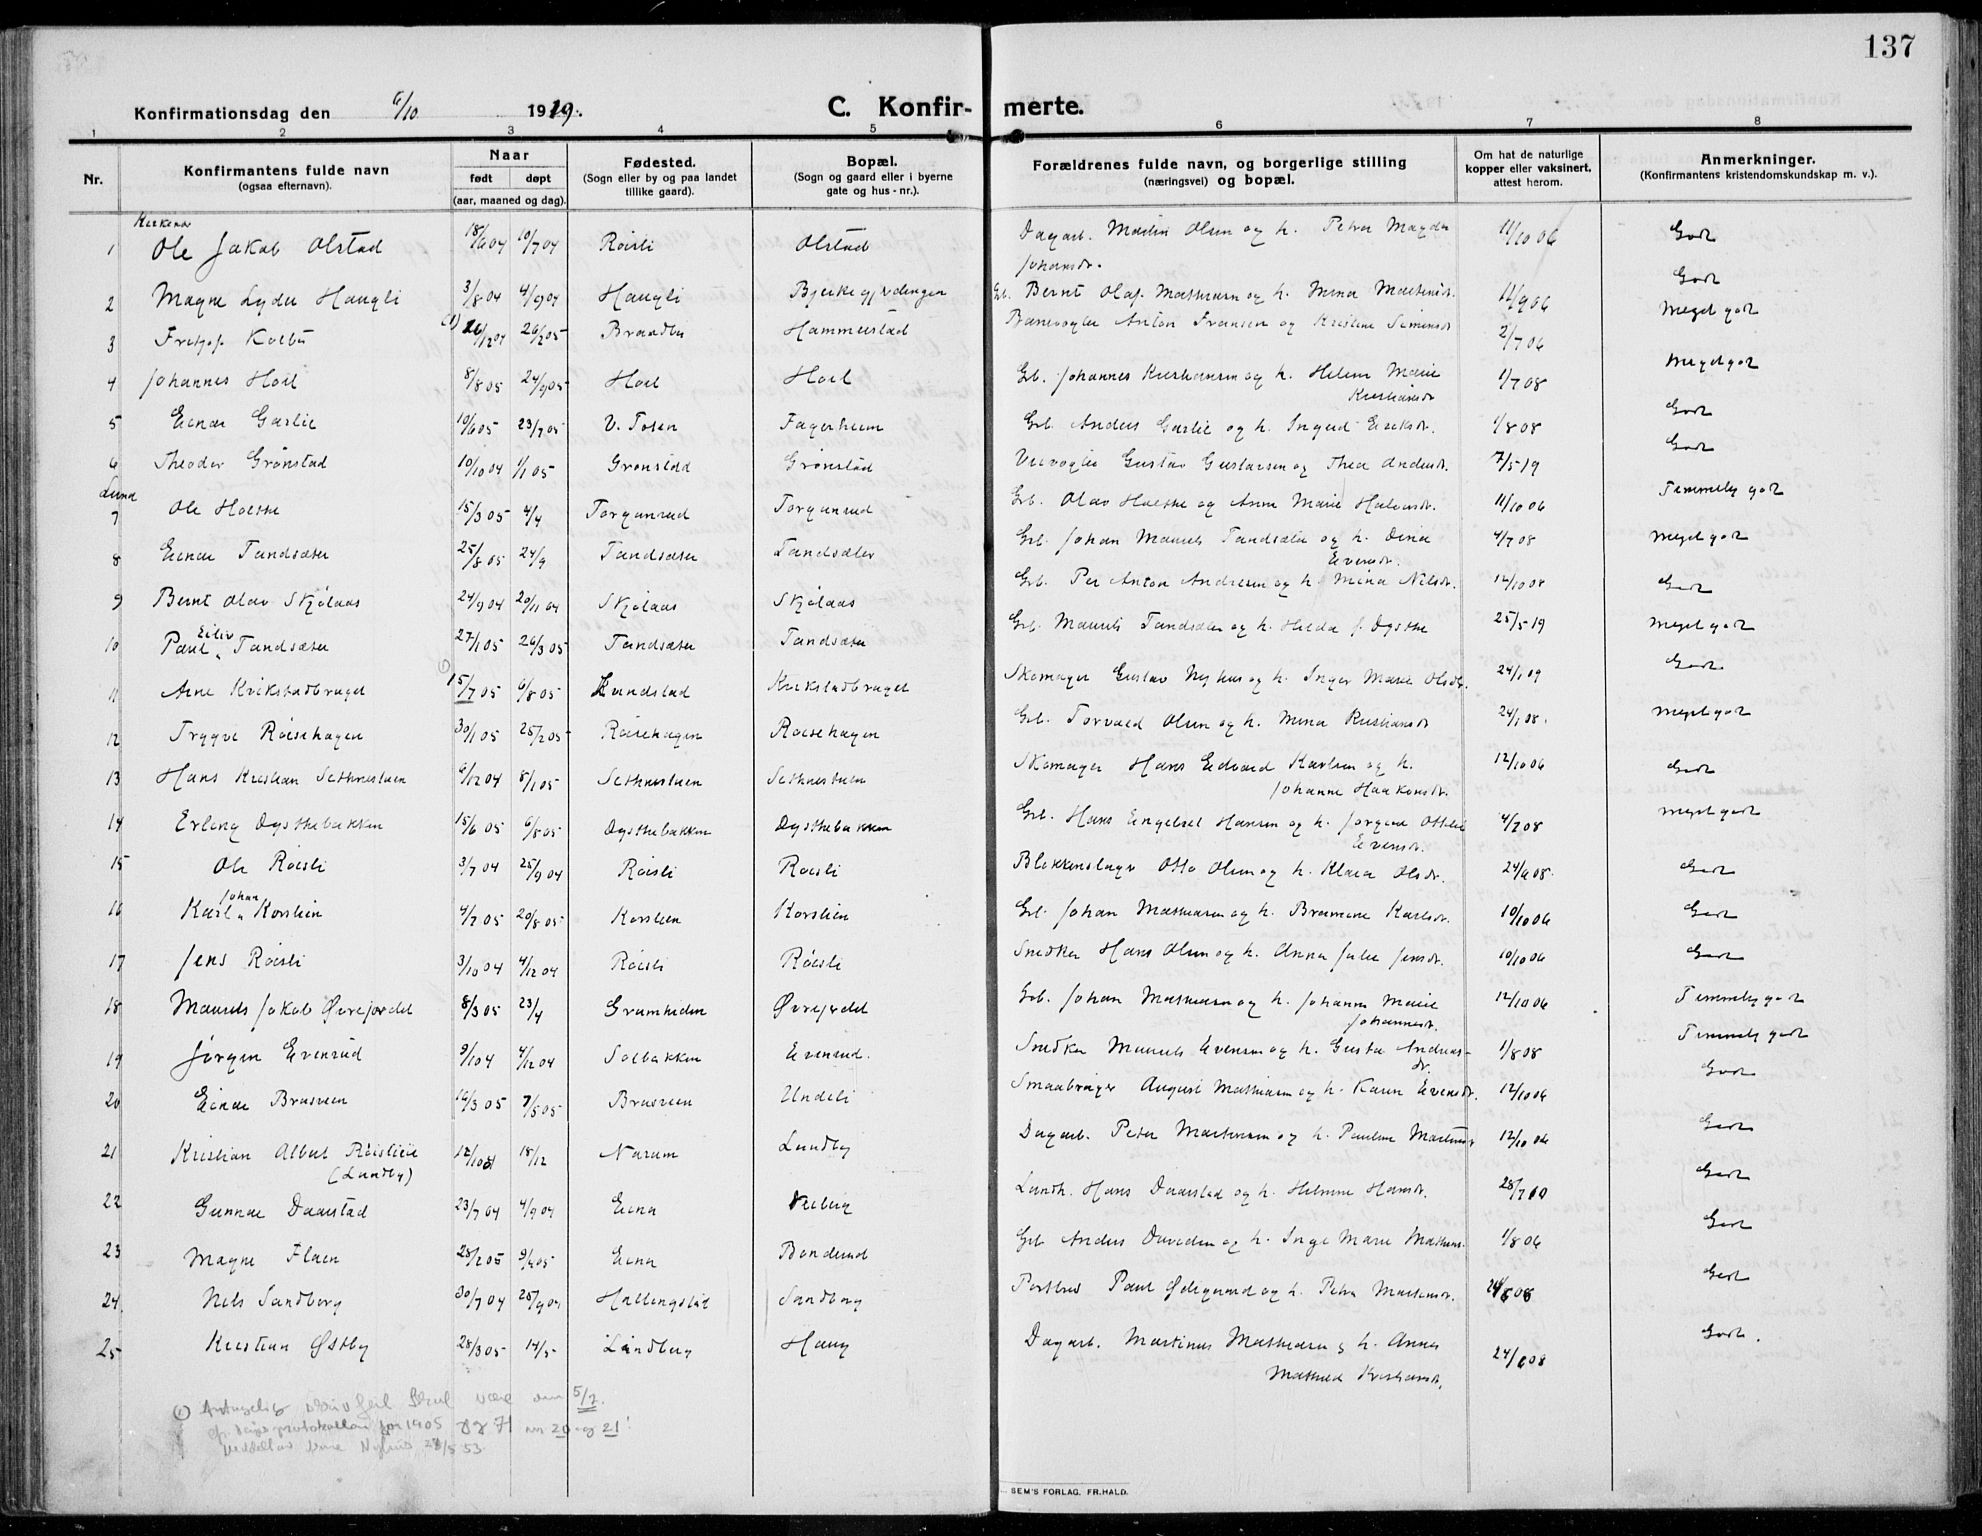 137
Konfirmationsdag den 6/10 1919.
C. Konfirmerte.
1 2 3 4 5 6 7 8
Nr.
Konfirmantens fulde navn
(ogsaa efternavn).
Naar
født døpt
(aar, maaned og dag).
Fødested.
(Sogn eller by og paa landet
tillike gaard).
Bopæl.
(Sogn og gaard eller i byerne
gate og hus-nr.).
Forældrenes fulde navn, og borgerlige stilling
(næringsvei) og bopæl.
Om hat de naturlige
kopper eller vaksinert,
attest herom.
Anmerkninger.
(Konfirmantens kristendomskundskap m. v.).
1 Ole Jakob Olstad 18/6 04 10/7 04 Røisli Olstad Dagarb. Martin Olsen og h. Petra Magda 11/10 06 Godt
Johansdr.
2 Magne Lyder Haugli 3/8 04 4/9 04 Haugli Bjerkegjerdingen Gb. Bernt Olaf Mathisen og h. Mina 11/9 06 Godt
3 Kolbu 26/12 04 26/2 05 Braadbu Hammerstad Banevogter Anton Fransen og Kristine Simensdr. 2/7 06 Meget godt
4 Johannes Hoel 8/8 05 24/9 05 Hoel Hoel Gb. Johannes Kristiansen og h. Helene Marie 1/7 08 Meget godt
Kristiansdr.
5 Einar Garlie 10/6 05 23/7 05 V. Toten Fagerheim Gb. Anders Garlie og h. Ingrid Eriksdr. 1/8 08 Godt
6 Theodor Grønstad 10/10 04 1/1 05 Grønstad Grønstad Veivogter Gustav Gustavsen og Thea Andersdr. 7/5 19 Godt
Lund
7 Ole 15/3 05 4/4 Torgunrud Torgunrud Gb. Olav og Anne Marie Halvorsdr. 11/10 06 Temmelig godt
8 Einar Tandsæter 25/8 05 24/9 Tandsæter Tandsæter Gb. Johan Mauritz Tandsæter og h. Dina 4/7 08 Meget godt
Evensdr.
9 Bernt Olav Skjølaas 24/9 04 20/11 04 Skjølaas Skjølaas Gb. Per Anton Andresen og h. Mina Nilsdr. 12/10 08 Godt
Eiliv
10 Paul Tandsæter 27/1 05 26/3 05 Tandsæter Tandsæter Gb. Maurits Tandsæter og h. Hilda f. Dysthe 25/5 19 Meget godt
11 Arne Krikstadbruget 15/7 05 6/8 05 Krikstadbruget Skomager Gustav Nyhus og h. Inger Marie Olsdr. 24/1 09 Godt
12 Trygve Røisehagen 30/1 05 25/2 05 Røisehagen Røisehagen Gb. Torvald Olsen og h. Mina Kristiansdr. 24/1 08. Meget godt
13 Hans Kristian Sethnestuen 6/12 04 8/1 05 Sethnestuen Sethnestuen Skomager Hans Edvard Karlsen og h. 12/10 06 Godt
Johanne Haakensdr.
14 Erling Dysthebakken 15/6 05 6/8 05 Dysthebakken Dysthebakken Gb. Hans Engebret Hansen og h. Jørgine Othilie 4/7 08 Meget godt
Evensdr.
15 Ole Røisli 3/7 04 25/9 04 Røisli Røisli Blikkenslager Otto Olsen og h. Klara Olsdr. 24/6 08. Godt
Johan
16 Karl Korslien 4/7 05 20/8 05 Korslien Korslien Gb. Johan Mathisen og h. Karlsdr. 10/10 06 Godt
17 Jens Røisli 3/10 04 4/12 04 Røisli Røisli Snedker Hans Olsen og h. Anna Julie Jensdr. 10/10 06 Godt
18 Maurits Jakob Øvrejordet 8/3 05 23/4 Gramheden Øvrejordet Gb. Johan Mathisen og h. Johanne Marie 12/10 06 Temmelig godt
Johannesdr.
19 Jørgen Evenrud 9/10 4 4/12 04 Solbakken Evenrud. Snedker Maurits Evensen og h. Gusta Andreasdr. 1/8 08 Temmelig godt
20 Einar Brusveen 16/3 05 7/5 05 Brusveen Undeli Smaabruger August Mathisen og h. Karen Evensdr. 12/10 06 Godt
21 Kristian Albert Røislien 12/10 04 18/12 Narum Lundby Dagarb. Peter Martinsen og h. Pauline 12/10 06 Godt
(Lundby)
22 Gunnar Daarstad 23/7 04 4/9 04 Eina Veiberg Landh. Hans Daarstad og h. Helmine Hansdr. 28/7 10 Godt
23 Magne Flaen 28/2 05 9/4 05 Eina Bondrud Gb Anders Davidsen og h. Inga Marie 1/8 06 Godt
24 Nils Sandberg 30/7 04 25/9 04 Sandberg Postbud Paul Ødegaard og h. Petra Martinsdr. 24/6 08 Godt
25 Kristian Østby 28/3 05 14/5 Lindberg Haug Dagarb. Martinus Mathisen og h. Anna 24/6 08 Godt.
Mathilde Kristiansdr.
1) Antagelig skrivfeil Skal være den 5/7.
protokollen for 1905 71 nr 20 og 21!
Arne Nyhus 53
SEM'S FORLAG. FR.HALD.